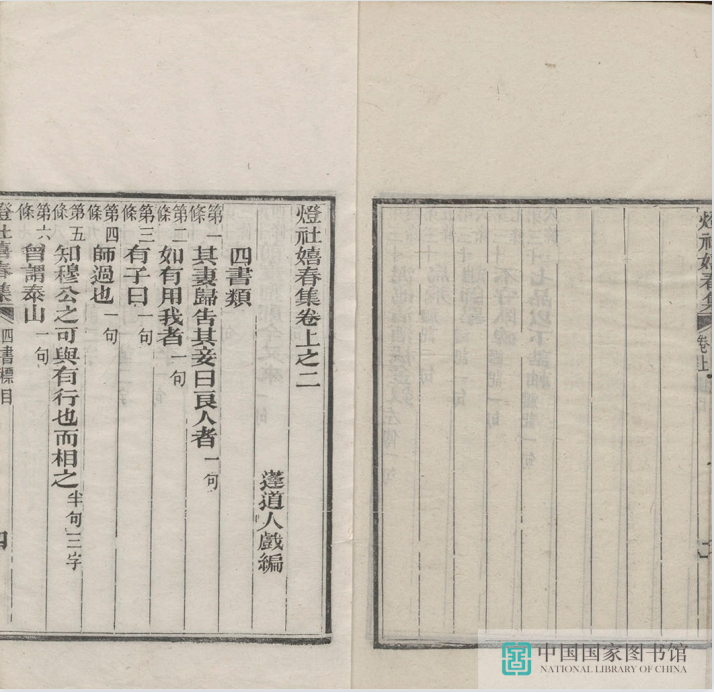 燈社嬉春集
卷上
燈社嬉春集卷上之二
蘧道人戲編
四書類
第一條
其妻歸告其妾曰良人者一句
第二條
如有用我者一句
第三條
有子曰一句
第四條
師過也一句
第五條
知穆公之可與有行也而相之半句三字
第六條
曾謂泰山一句
燈社嬉春集
四書標目
四
中国国家图书馆
NATIONAL LIBRARY OF CHINA